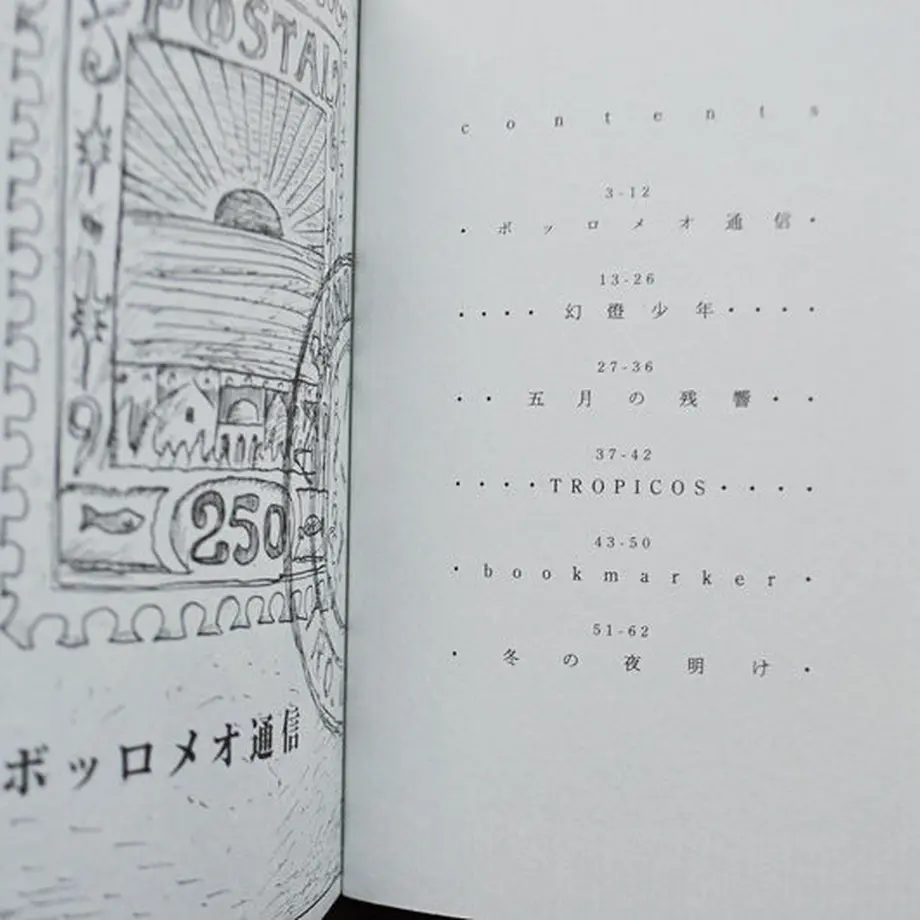 POSTAL
19
250
ボッロメオ通信
contents
3-12
・ボッロメオ通信・
13-26
・・・・幻燈少年・・・・
27-36
・・五月の残響・・
37-42
・・・・TROPICOS・・・・
43-50
・bookmarker・
51-62
・冬の夜明け・